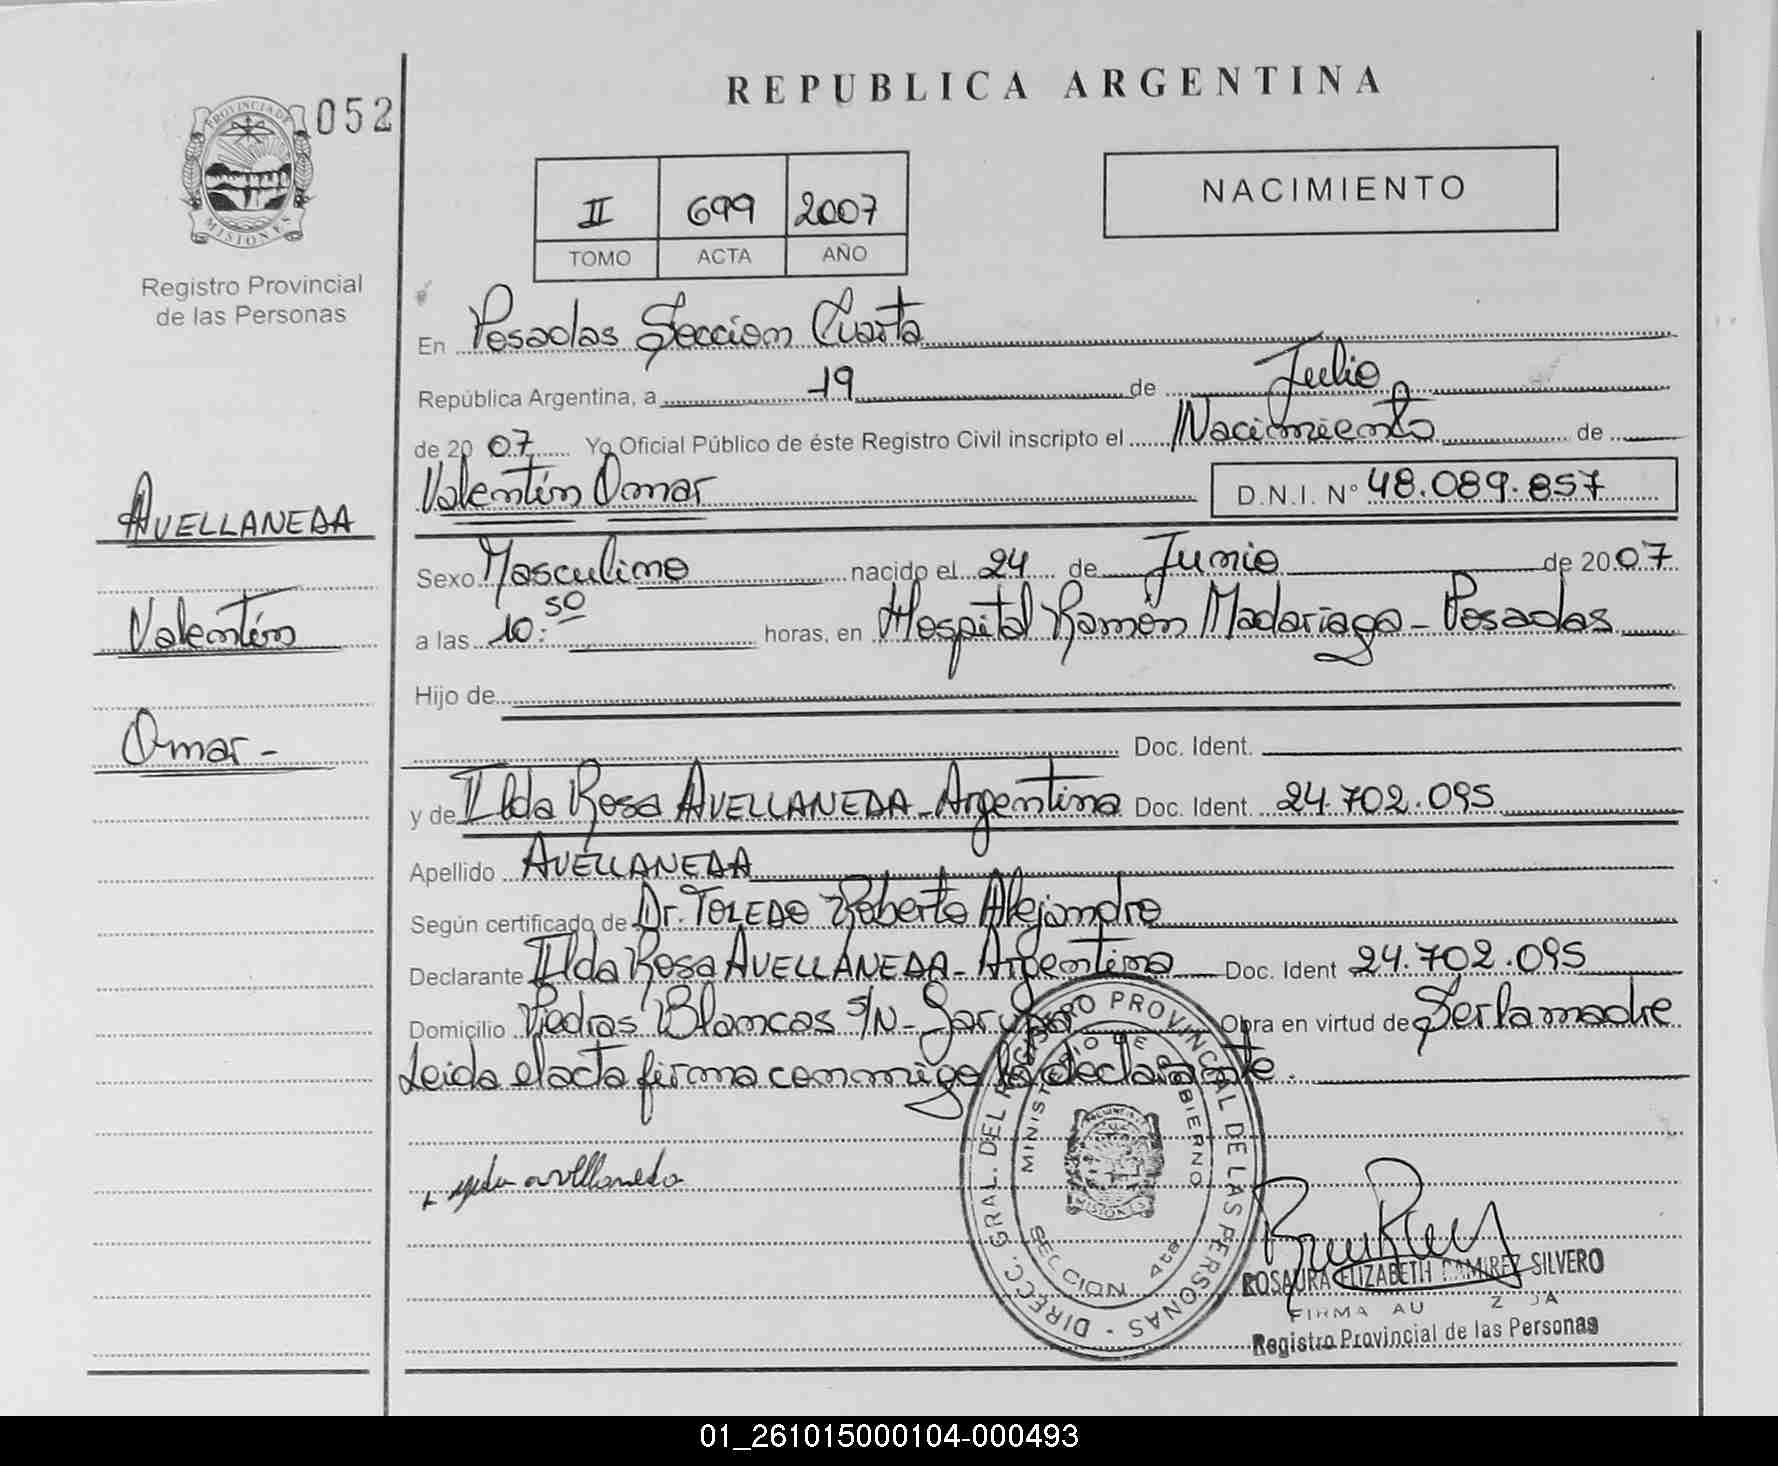 REPUBLICA ARGENTINA
PROVINCIA DE
MISIONES
052
Registro Provincial
de las Personas
II 699 2007
TOMO ACTA AÑO
NACIMIENTO
En Posadas Sección Cuarta
República Argentina, a 19 de Julio
de 2007 Yo Oficial Público de éste Registro Civil inscripto el Nacimiento de
Valentín Omar D.N.I. N° 48.089.857
AVELLANEDA
Valentín
Omar -
Sexo Masculino nacido el 24 de Junio de 2007
a las 10:50 horas, en Hospital Ramón Madariaga - Posadas
Hijo de
Doc. Ident.
y de Ilda Rosa AVELLANEDA - Argentina Doc. Ident. 24.702.095
Apellido AVELLANEDA
Según certificado de Dr. TOLEDO Roberto Alejandro
Declarante Ilda Rosa AVELLANEDA - Argentina Doc. Ident 24.702.095
Domicilio Piedras Blancas S/N - Garupa Obra en virtud de Ser la madre
Leida el acta firma conmigo la declarante.
avellaneda
DIRECC. GRAL. DEL REGISTRO PROVINCIAL DE LAS PERSONAS -
MINISTERIO DE GOBIERNO
SECCION 4ta
ROSAURA ELIZABETH RAMIREZ SILVERO
FIRMA AU Z DA
Registro Provincial de las Personas
01_261015000104-000493